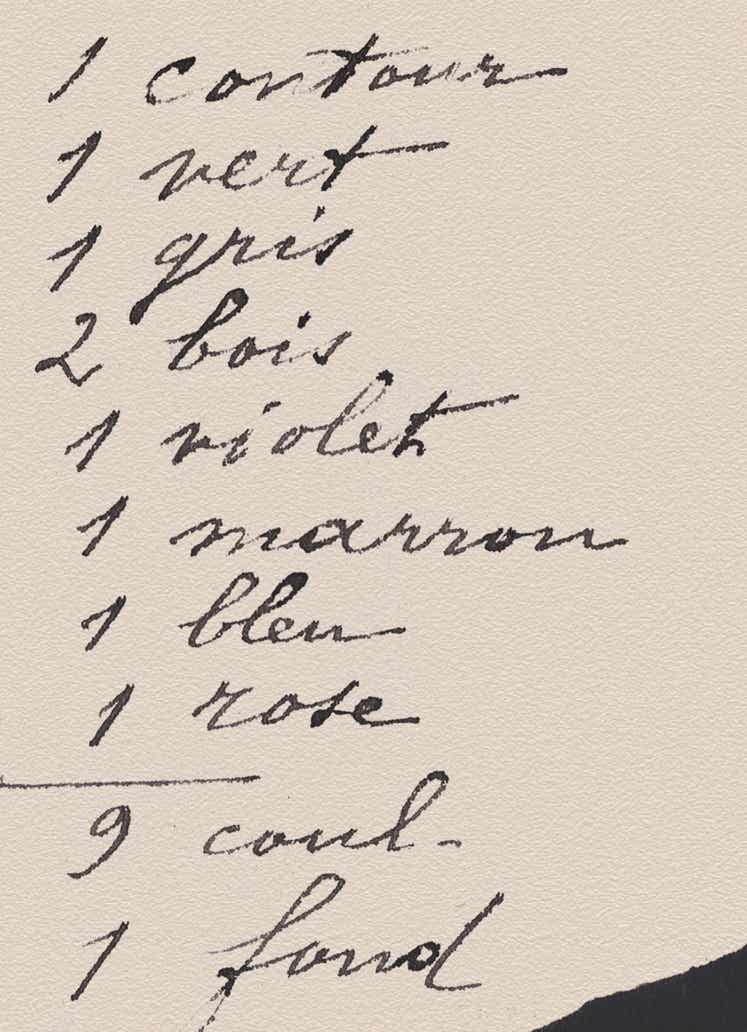 1 contour
1 vert
1 gris
2 bois
1 violet
1 marron
1 bleu
1 rose
9 coul-
1 fond